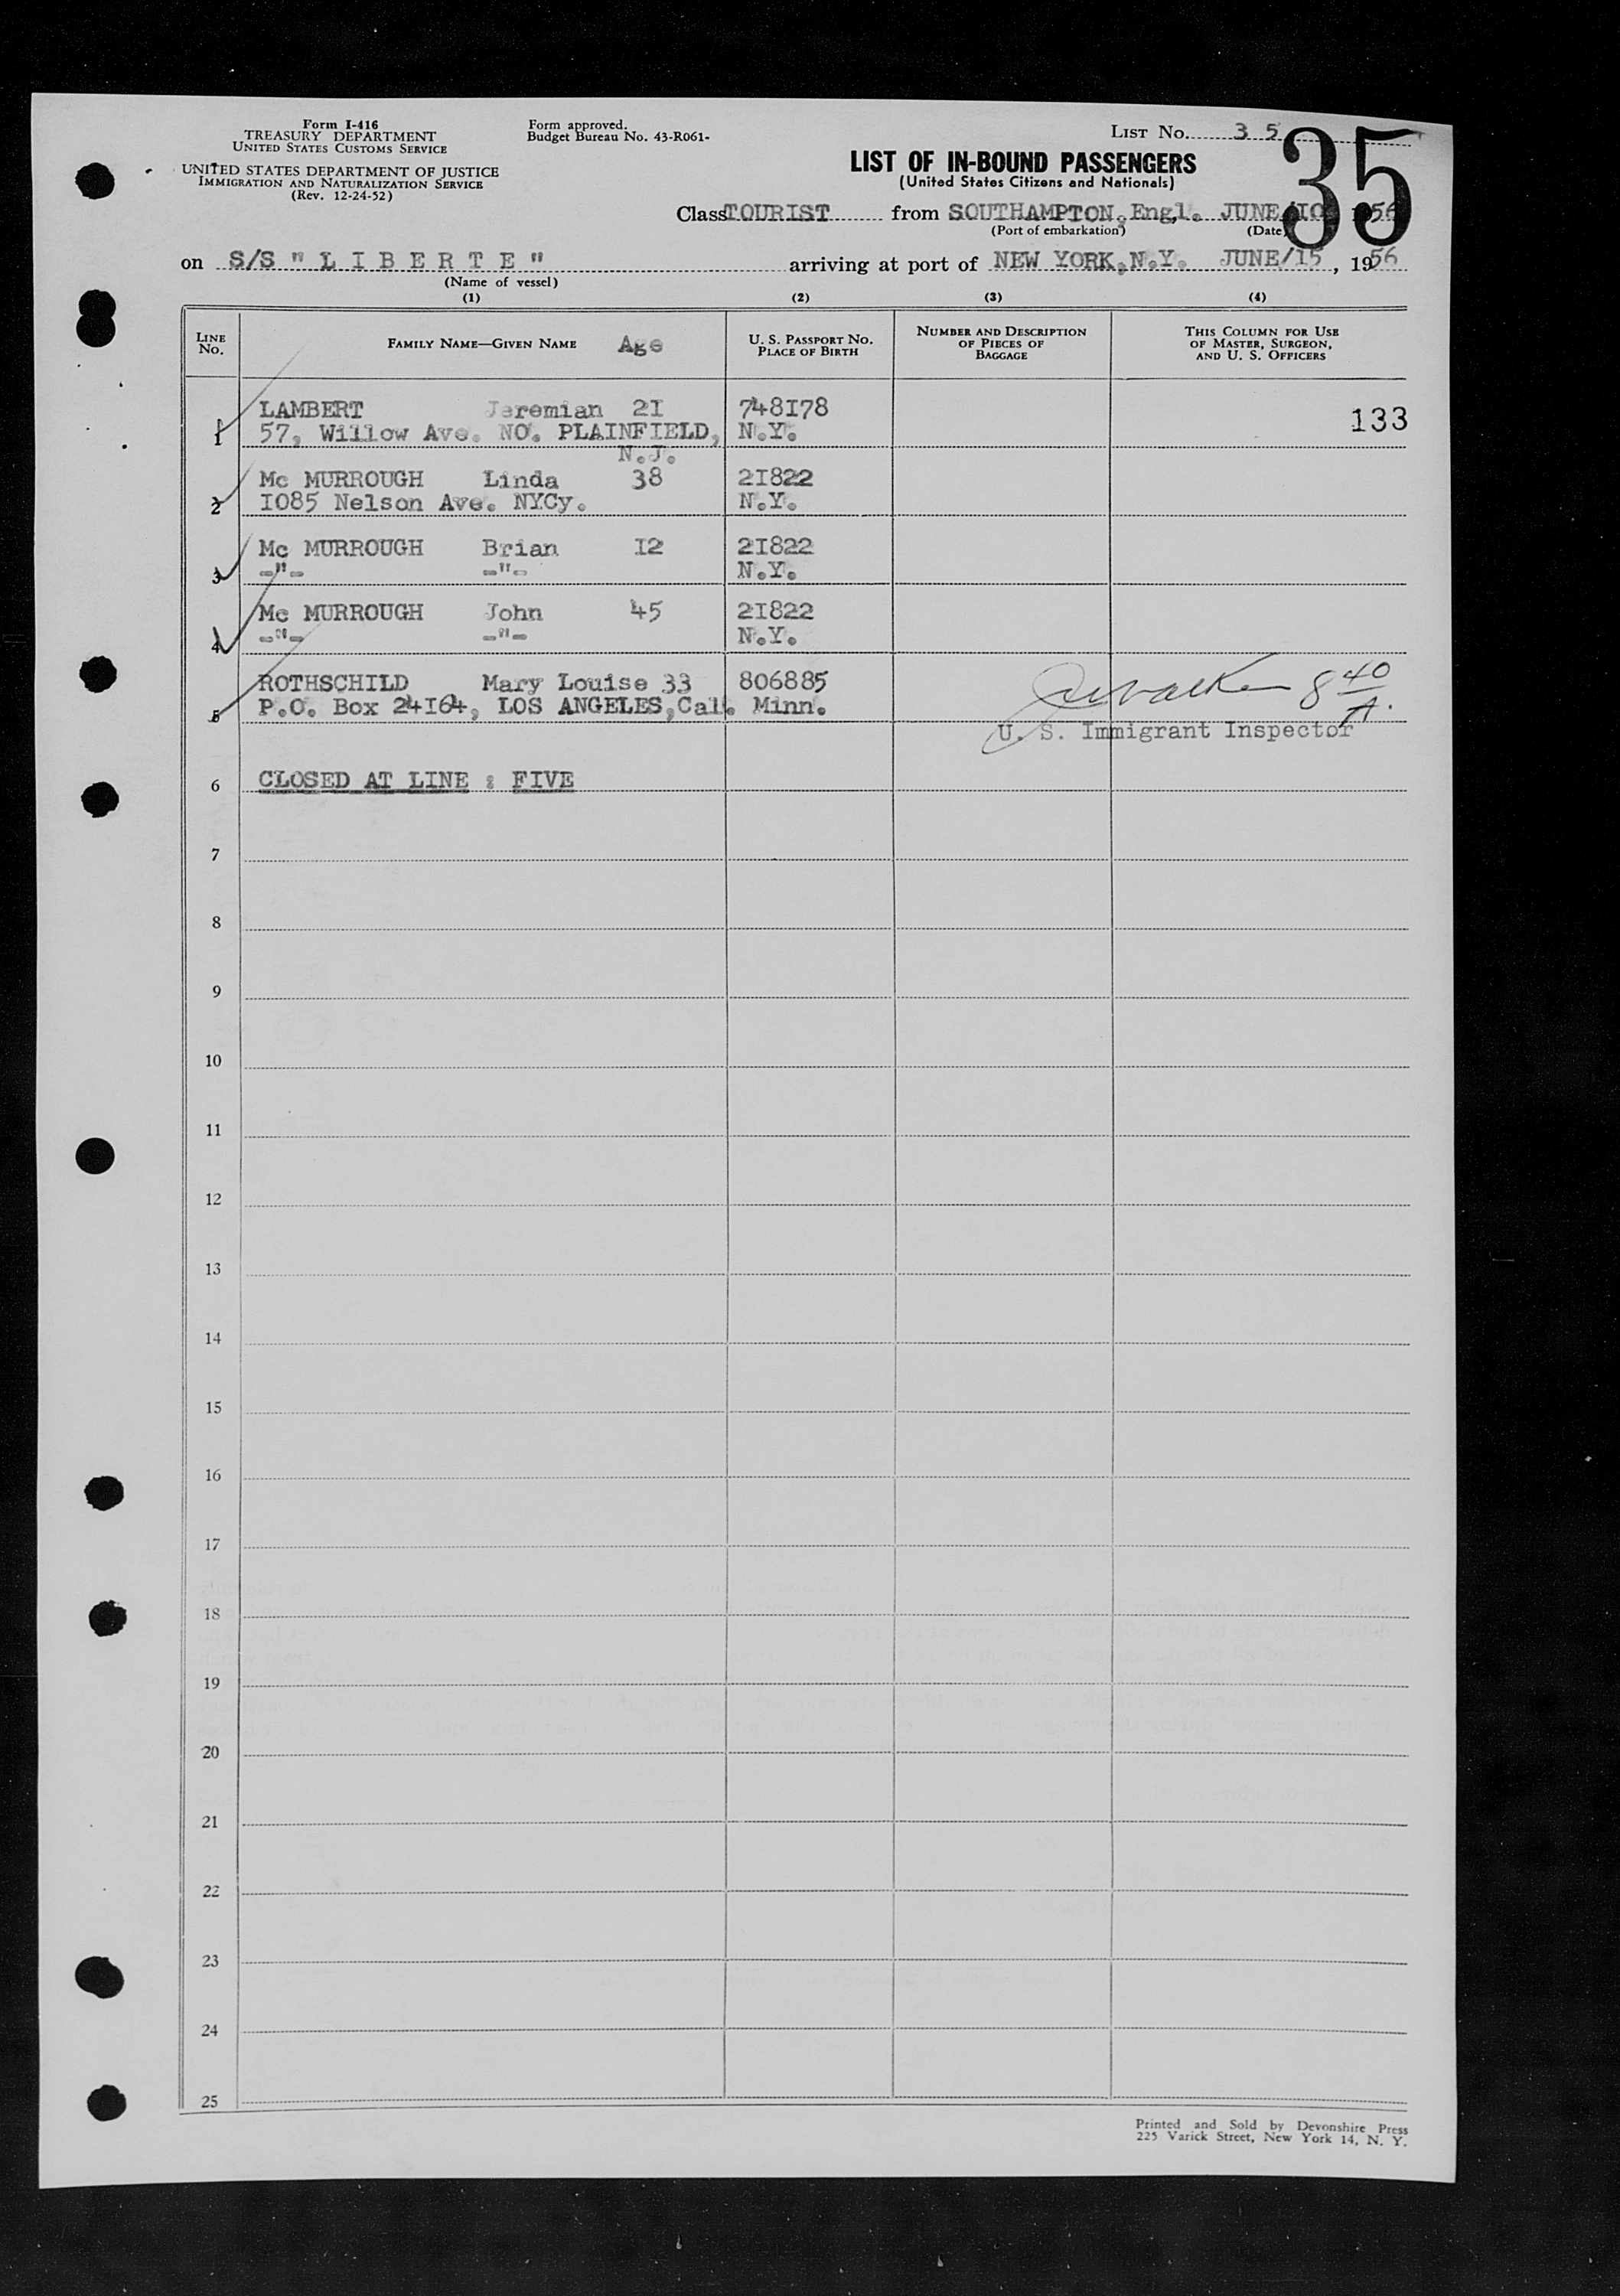 Form I-416
TREASURY DEPARTMENT
UNITED STATES CUSTOMS SERVICE
UNITED STATES DEPARTMENT OF JUSTICE
IMMIGRATION AND NATURALIZATION SERVICE
(Rev. 12-24-52)
Form approved.
Budget Bureau No. 43-R061-
LIST No. 3 5
35
LIST OF IN-BOUND PASSENGERS
(United States Citizens and Nationals)
Class TOURIST from SOUTHAMPTON, Engl. JUNE/10 56
(Port of embarkation) (Date)
on S/S " L I B E R T E " arriving at port of NEW YORK, N.Y. JUNE/15, 1956
(Name of vessel)
(1) (2) (3) (4)
LINE No. FAMILY NAME—GIVEN NAME Age U. S. PASSPORT NO. PLACE OF BIRTH NUMBER AND DESCRIPTION OF PIECES OF BAGGAGE THIS COLUMN FOR USE OF MASTER, SURGEON, AND U. S. OFFICERS
LAMBERT Jeremian 2I 748I78 133
1 57, Willow Ave. NO. PLAINFIELD, N.Y.
N.J.
Mc MURROUGH Linda 38 2I822
2 I085 Nelson Ave. NYCy. N.Y.
Mc MURROUGH Brian I2 2I822
3 -"- -"- N.Y.
Mc MURROUGH John 45 2I822
4 -"- -"- N.Y.
ROTHSCHILD Mary Louise 33 806885 8 40 A.
5 P.O. Box 24I64, LOS ANGELES, Cal. Minn.
U. S. Immigrant Inspector
6 CLOSED AT LINE : FIVE
7
8
9
10
11
12
13
14
15
16
17
18
19
20
21
22
23
24
25
Printed and Sold by Devonshire Press
225 Varick Street, New York 14, N. Y.